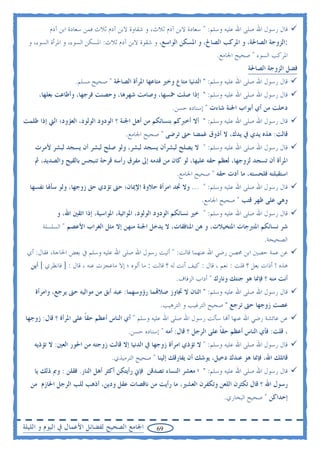 قال رسول الله صلى الله عليه وسلم: " سعادة لابن آدم ثلاث، و شقاوة لابن آدم ثلاث فمن سعادة ابن آدم
:الزوجة الصالحة، و المركب الصالح، و المسكن الواسع، و شقوة لابن آدم ثلاث: المسكن السوء، و المرأة السوء، و
المركب السوء " صحيح الجامع.
فضل الزوجة الصالحة
قال رسول الله صلى الله عليه وسلم: " الدنيا متاع وخير متاعها المرأة الصالحة " صحيح مسلم.
قال رسول الله صلى الله عليه وسلم: " إذا صلت خمسها، وصامت شهرها، وحصنت فرجها، وأطاعت بعلها،
دخلت من أي أبواب الجنة شاءت " إسناده حسن.
قال رسول الله صلى الله عليه وسلم: " ألا أخبركم بنسائكم من أهل الجنة ؟ الودود الولود، العؤود؛ التي إذا ظلمت
قالت: هذه يدي في يدك، لا أذوق غمضا حتى ترضى " صحيح الجامع.
قال رسول الله صلى الله عليه وسلم: " لا يصلح لبشرأن يسجد لبشر، ولو صلح لبشر أن يسجد لبشر لأمرت
المرأة أن تسجد لزوجها، لعظم حقه عليها، لو كان من قدمه إلى مفرق رأسه قرحة تنبجس بالقيح والصديد، ثم
استقبلته فلحسته، ما أدت حقه " صحيح الجامع.
قال رسول الله صلى الله عليه وسلم: " ... ولا تجد امرأة حلاوة الإيمان، حتى تؤدي حق زوجها، ولو سألها نفسها
وهي على ظهر قتب " صحيح الجامع.
قال رسول الله صلى الله عليه وسلم: " خير نسائكم الودود الولود، المواتية، المواسية، إذا اتقين الله، و
شر نسائكم المتبرجات المتخيلات، و هن المنافقات، لا يدخل الجنة منهن إلا مثل الغراب الأعصم " السلسلة
الصحيحة.
عن عمة حصين ابن محصن رضي الله عنهما قالت: " أتيت رسول الله صلى الله عليه وسلم في بعض الحاجة، فقال: أي
هذه ! أذات بعل ؟ قلت : نعم ، قال : كيف أنت له ؟ قالت : ما آلوه ؛ إلا ماعجزت عنه ، قال : [ فانظري ] أين
أنت منه ؟ فإنما هو جنتك ونارك " آداب الزفاف.
قال رسول الله صلى الله عليه وسلم: " اثنان لا تجاوز صلاتهما رؤوسهما: عبد أبق من مواليه حتى يرجع، وامرأة
عصت زوجها حتى ترجع " صحيح الترغيب و الترهيب.
عن عائشة رضي الله عنها أنها سألت رسول الله صلى الله عليه وسلم " أي الناس أعظم حقاً على المرأة ؟ قال: زوجها
، قلت: فأي الناس أعظم حقاً على الرجل ؟ قال: أمه " إسناده حسن.
قال رسول الله صلى الله عليه وسلم: " لا تؤذي امرأة زوجها في الدنيا إلا قالت زوجته من الحور العين: لا تؤذيه
قاتلك الله، فإنما هو عندك دخيل، يوشك أن يفارقك إلينا " صحيح الترمذي.
قال رسول الله صلى الله عليه وسلم: " يا معشر النساء تصدقن فإني رأيتكن أكثر أهل النار. فقلن : وبم ذلك يا
رسول الله ؟ قال تكثرن اللعن وتكفرن العشير، ما رأيت من ناقصات عقل ودين، أذهب للب الرجل الحازم من
إحداكن " صحيح البخاري.
69 الجامع الصحيح لفضائل الأعمال في اليوم و الليلة